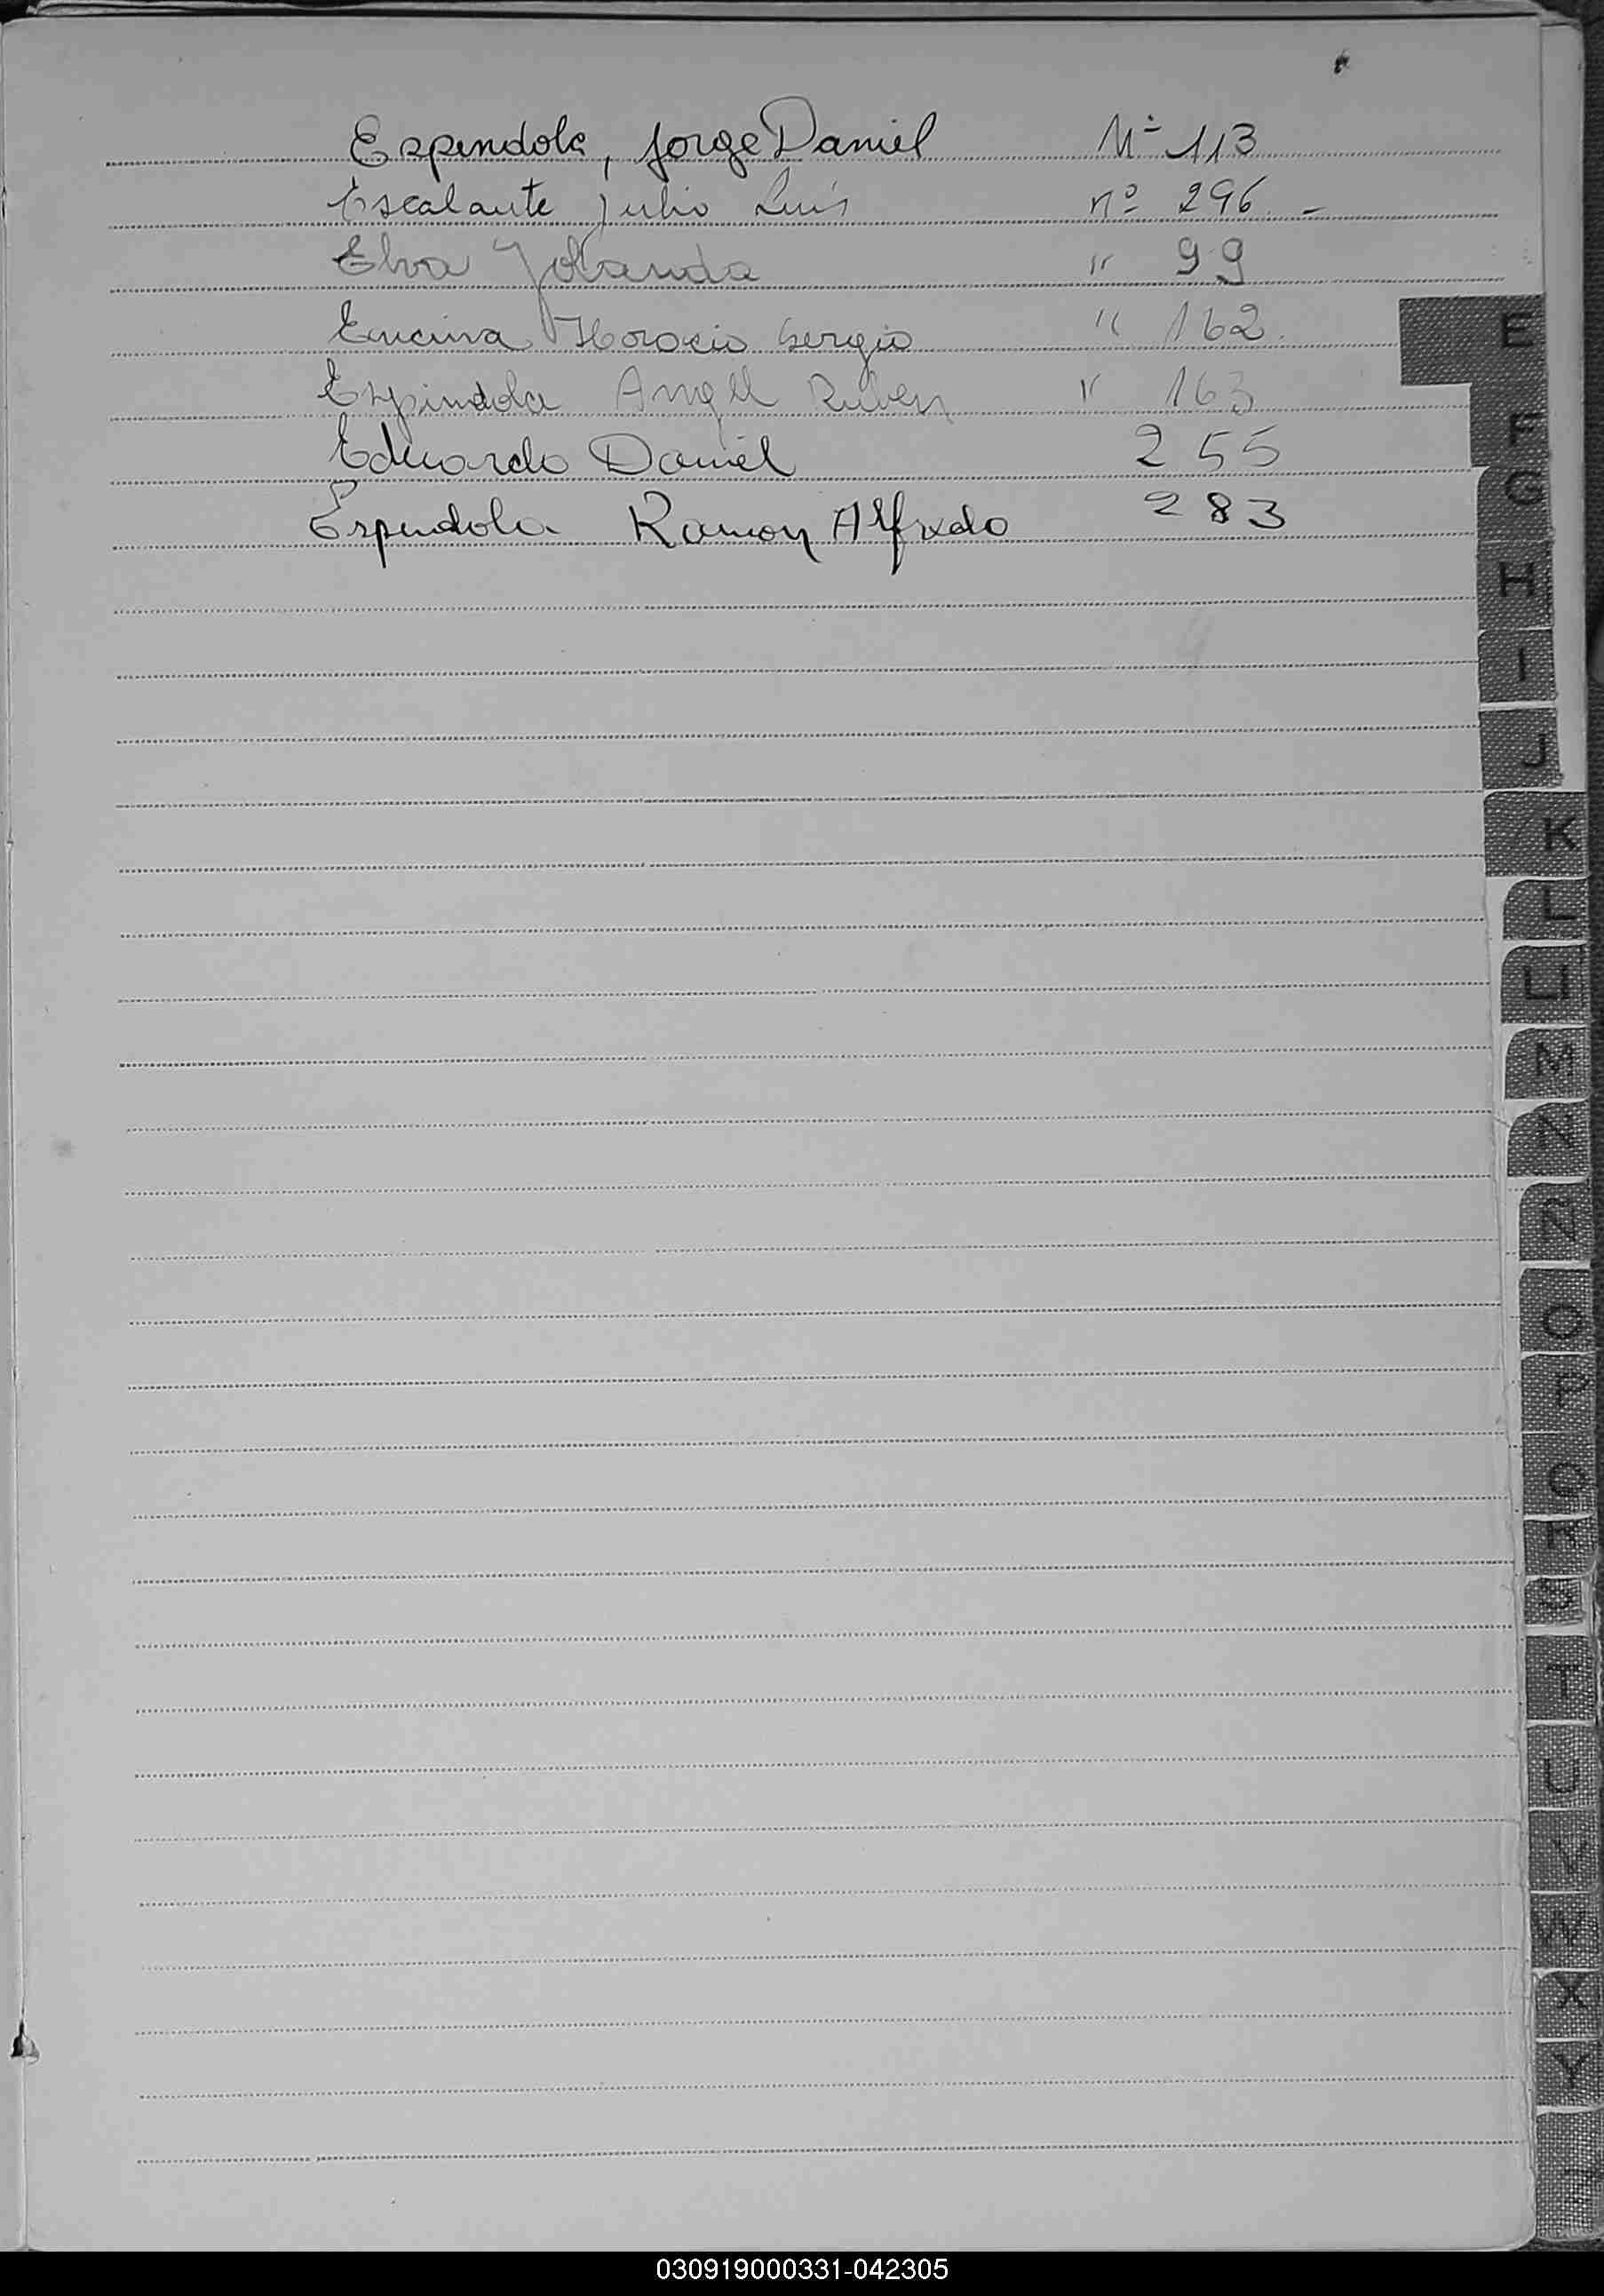 Espindola, Jorge Daniel Nº 113
Escalante Julio Luis nº 296 -
Elva Yolanda " 99
Encina Horacio Sergio " 162.
Espindola Angel Ruben " 163
Eduardo Daniel 255
Espindola Ramon Alfredo 283
E
F
G
H
I
J
K
L
LL
M
N
Ñ
O
P
Q
R
S
T
U
V
W
X
Y
030919000331-042305